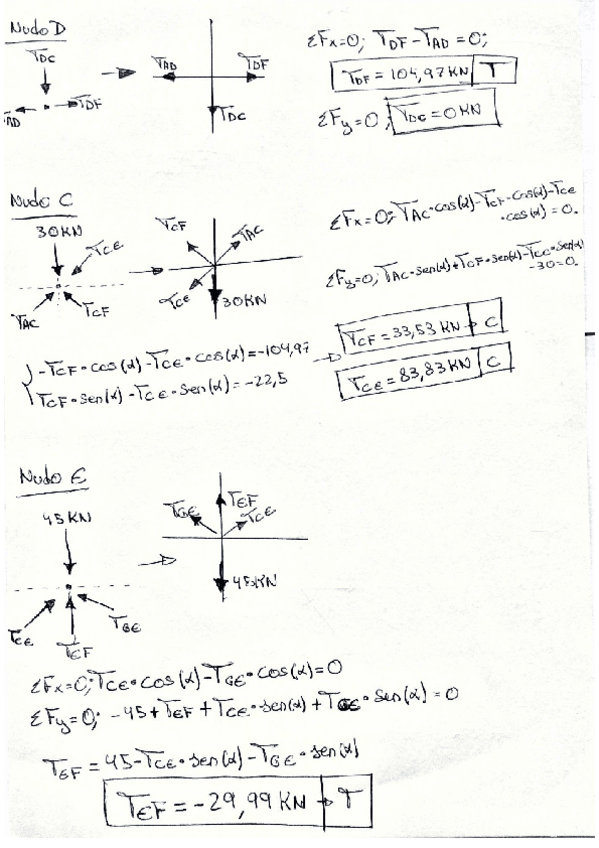 Nudo D
TDC
TAD
TDF
TDF
TDC
ΣFx=0; TDF-TAD=0;
TDF=104,97 KN T
ΣFy=0; TDC=0KN
Nudo C
30KN
TCE
TAC
TCF
TCF
TAC
TCE
30KN
ΣFx=0; TAC·cos(α)-TCF·cos(α)-TCE
·cos(α)=0.
ΣFy=0; TAC·sen(α)+TCF·sen(α)-TCE·sen(α)
-30=0.
-TCF·cos(α)-TCE·cos(α)=-104,97
TCF·sen(α)-TCE·sen(α)=-22,5
TCF=33,53 KN → C
TCE=83,83 KN C
Nudo E
45KN
TCE
TEF
TGE
TGE
TEF
TCE
45KN
ΣFx=0; TCE·cos(α)-TGE·cos(α)=0
ΣFy=0; -45+TEF+TCE·sen(α)+TGE·sen(α)=0
TEF=45-TCE·sen(α)-TGE·sen(α)
TEF=-29,99 KN → T